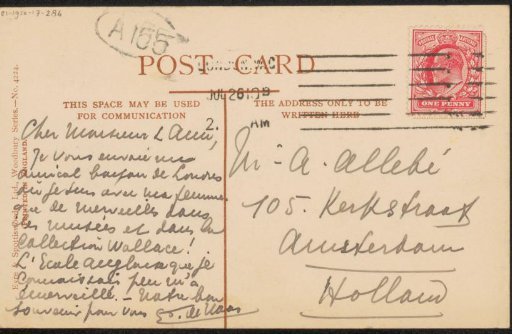 01-1950-17-284
A 155
POST CARD
LONDON. W.C
JUL 26 1 09
2.
AM
ONE PENNY
THIS SPACE MAY BE USED
FOR COMMUNICATION
THE ADDRESS ONLY TO BE
WRITTEN HERE
Woodbury Series.—No. 4224.
Cher Monsieur
Je vous envoie un
amical bonjour de Londres
où je suis avec ma femme.
que de merveilles dans
les musées et dans la
Collection Wallace!
L'Ecole anglaise que je
connaissais peu m'a
émerveillé. — Notre bon
souvenir pour vous
Mr A. Allebé
105. Kerkstraat
Amsterdam
Holland